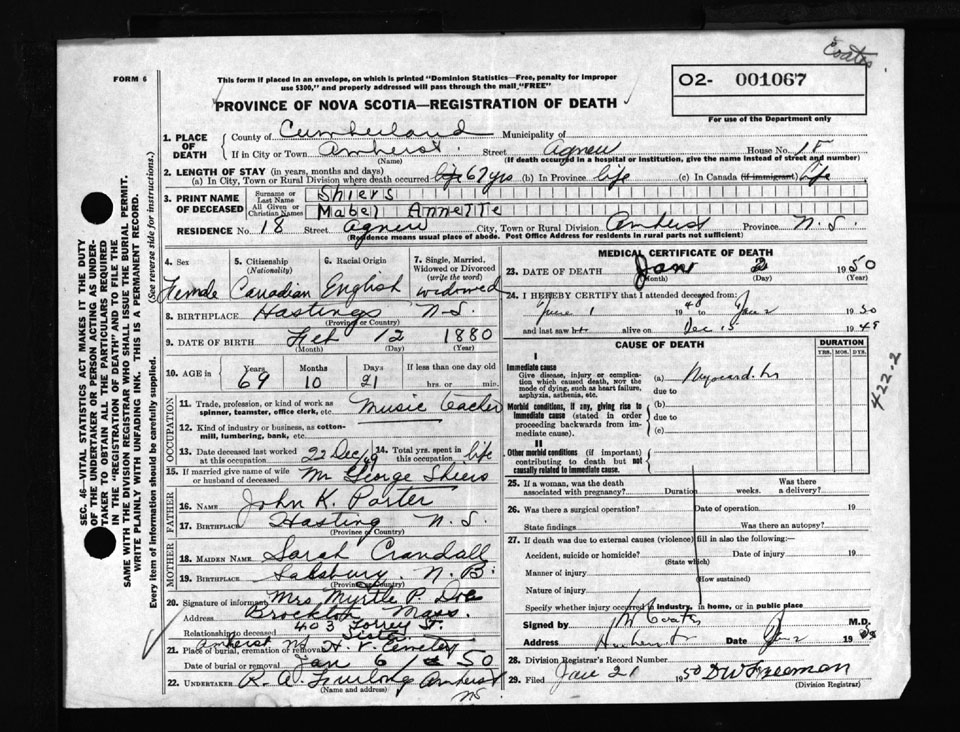 Coates
FORM 6
This form if placed in an envelope, on which is printed "Dominion Statistics—Free, penalty for improper
use $300," and properly addressed will pass through the mail "FREE"
O2- 001067
For use of the Department only
PROVINCE OF NOVA SCOTIA—REGISTRATION OF DEATH
1. PLACE OF DEATH County of Cumberland Municipality of
If in City or Town Amherst Street Agnew House No. 18
(Name) (If death occurred in a hospital or institution, give the name instead of street and number)
2. LENGTH OF STAY (in years, months and days)
(a) In City, Town or Rural Division where death occurred life 67 yrs (b) In Province life (c) In Canada (if immigrant) life
3. PRINT NAME OF DECEASED Surname or Last Name Shiers
All Given or Christian Names Mabel Annette
RESIDENCE No. 18 Street Agnew City, Town or Rural Division Amherst Province N.S.
(Residence means usual place of abode. Post Office Address for residents in rural parts not sufficient)
4. Sex Female
5. Citizenship (Nationality) Canadian
6. Racial Origin English
7. Single, Married, Widowed or Divorced (write the word) widowed
8. BIRTHPLACE Hastings N.S.
(Province or Country)
9. DATE OF BIRTH Feb 12 1880
(Month) (Day) (Year)
10. AGE in Years 69 Months 10 Days 21 If less than one day old hrs. or min.
OCCUPATION
11. Trade, profession, or kind of work as spinner, teamster, office clerk, etc. Music teacher
12. Kind of industry or business, as cotton-mill, lumbering, bank, etc.
13. Date deceased last worked at this occupation 22 Dec/49
14. Total yrs. spent in this occupation life
15. If married give name of wife or husband of deceased Mr George Shiers
FATHER
16. NAME John K. Porter
17. BIRTHPLACE Hasting N.S.
(Province or Country)
MOTHER
18. MAIDEN NAME Sarah Crandall
19. BIRTHPLACE Salsbury N.B.
(Province or Country)
20. Signature of informant Mrs Myrtle P.
Address Brockton Mass.
403 Torrey St.
Relationship to deceased Sister
21. Place of burial, cremation or removal Amherst NS H. V. Cemetery
Date of burial or removal Jan 6 / 50
22. UNDERTAKER R. A. Furlong Amherst
(Name and address) NS
MEDICAL CERTIFICATE OF DEATH
23. DATE OF DEATH Jan 2 1950
(Month) (Day) (Year)
24. I HEREBY CERTIFY that I attended deceased from:
June 1 1948 to Jan 2 1950
and last saw her alive on Dec 1949
CAUSE OF DEATH
DURATION
YRS. MOS. DYS.
I
Immediate cause
Give disease, injury or complication which caused death, not the mode of dying, such as heart failure, asphyxia, asthenia, etc.
(a) Myocarditis
due to
Morbid conditions, if any, giving rise to immediate cause (stated in order proceeding backwards from immediate cause).
(b)
due to
(c)
II
Other morbid conditions (if important) contributing to death but not causally related to immediate cause.
422.2
25. If a woman, was the death associated with pregnancy? Duration weeks. Was there a delivery?
26. Was there a surgical operation? Date of operation 19
State findings Was there an autopsy?
27. If death was due to external causes (violence) fill in also the following:
Accident, suicide or homicide? Date of injury 19
(State which)
Manner of injury
(How sustained)
Nature of injury
Specify whether injury occurred in industry, in home, or in public place
Signed by Coates M.D.
Address Amherst Date Jan 2 19
28. Division Registrar's Record Number
29. Filed Jan 21 1950 D W Freeman
(Division Registrar)
SEC. 46—VITAL STATISTICS ACT MAKES IT THE DUTY
OF THE UNDERTAKER OR PERSON ACTING AS UNDERTAKER TO OBTAIN ALL THE PARTICULARS REQUIRED
IN THE "REGISTRATION OF DEATH" AND TO FILE THE
SAME WITH THE DIVISION REGISTRAR WHO SHALL ISSUE THE BURIAL PERMIT.
WRITE PLAINLY WITH UNFADING INK. THIS IS A PERMANENT RECORD.
Every item of information should be carefully supplied. (See reverse side for instructions.)